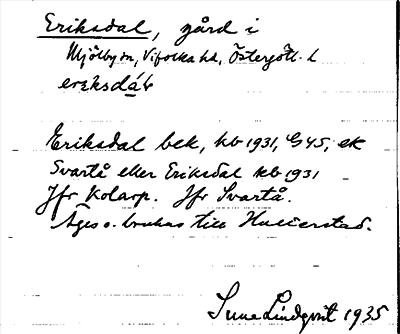 Eriksdal, gård i
Mjölby sn, Vifolka hd, Östergötl. l
Eriksdal bek, kb 1931, G45, ek
Svartå eller Eriksdal kb 1931
Jfr Kolarp. Jfr Svartå.
Äges o. brukas till Hullerstad.
Sune Lindqvist 1935